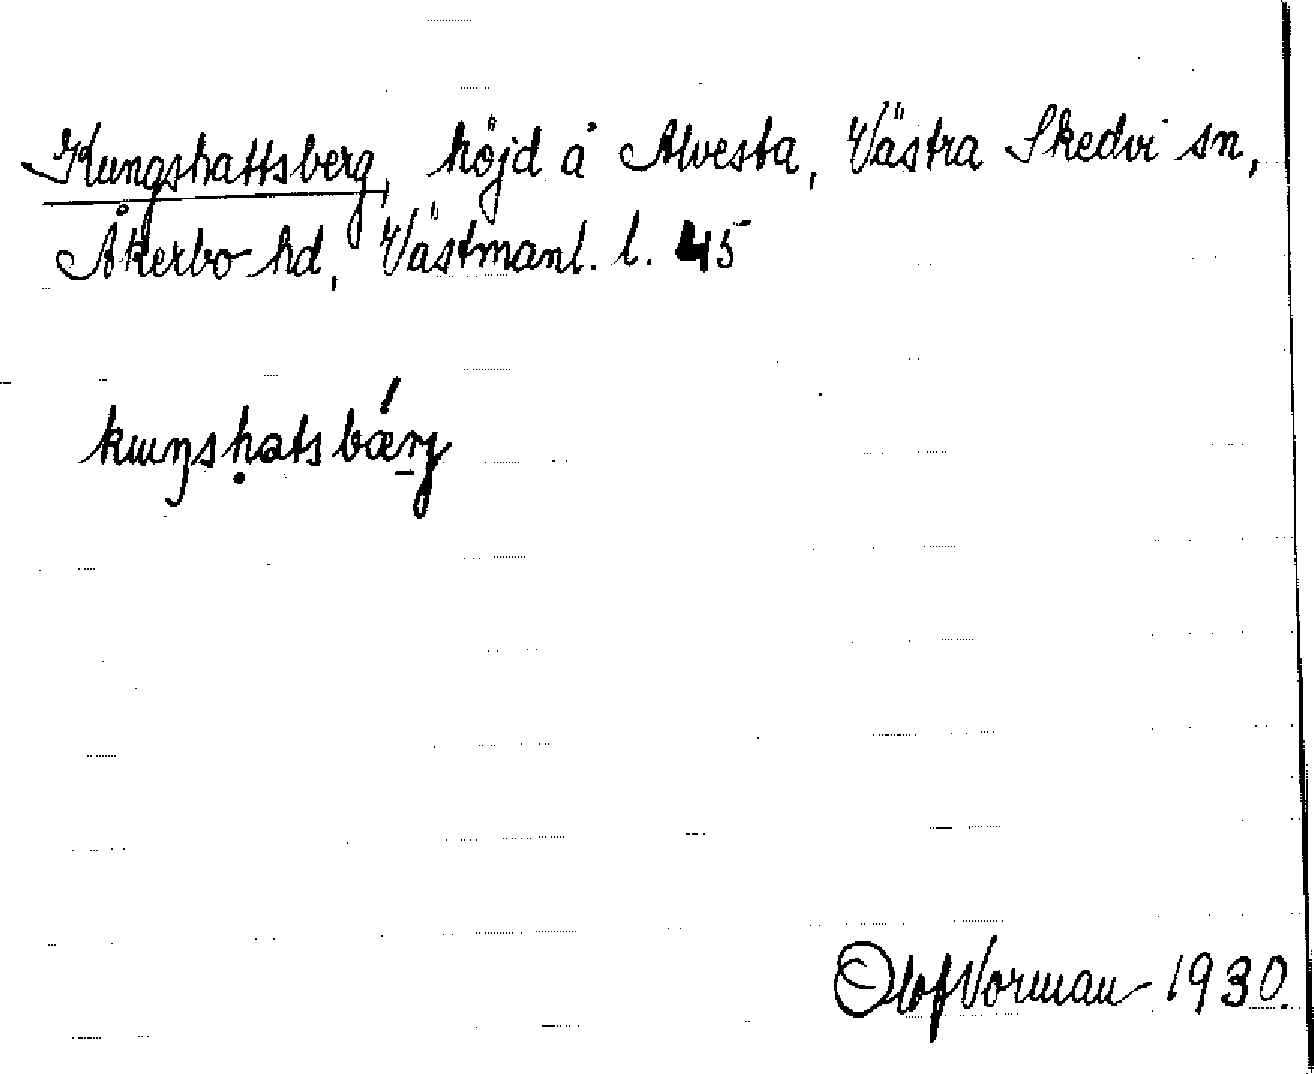 Kungshattsberg, höjd å Alvesta, Västra Skedvi sn,
Åkerbo hd, Västmanl. l. 45
kɯŋshatsbærj
Olof Vorman 1930.